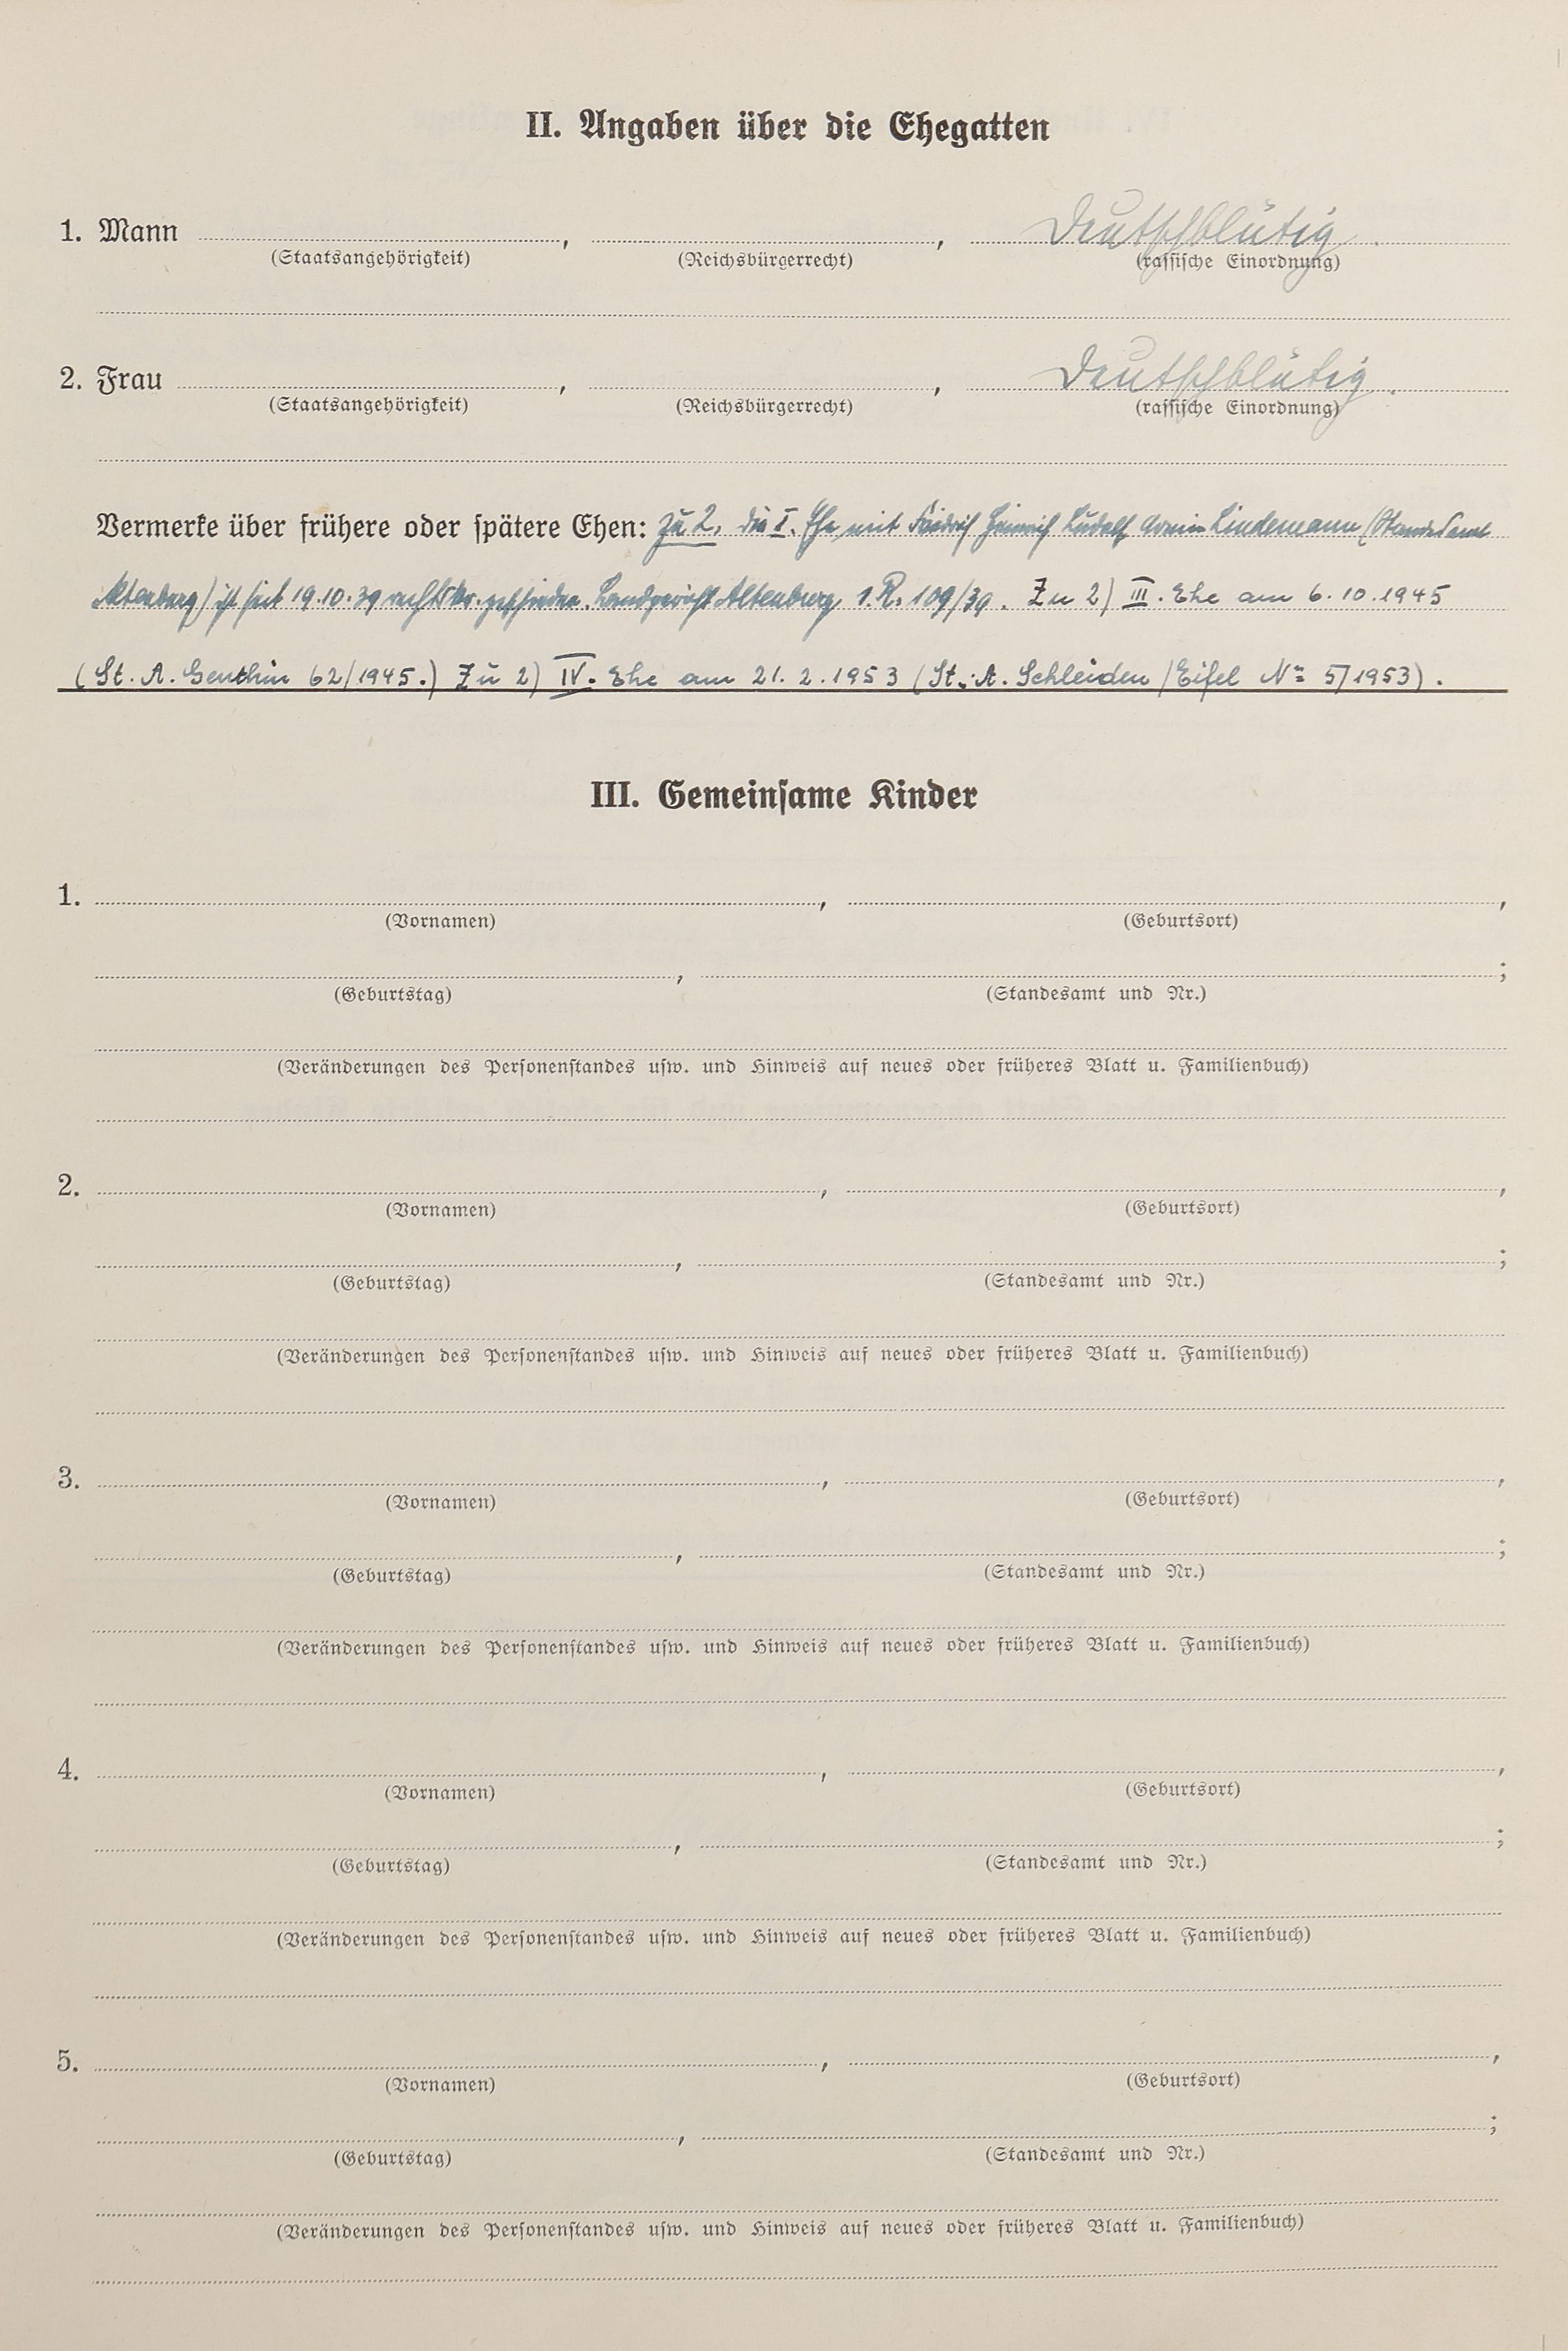 II. Angaben über die Ehegatten
1. Mann , , Deutschblütig.
(Staatsangehörigkeit) (Reichsbürgerrecht) (rassische Einordnung)
2. Frau , , Deutschblütig.
(Staatsangehörigkeit) (Reichsbürgerrecht) (rassische Einordnung)
Vermerke über frühere oder spätere Ehen: Zu 2. Die I. Ehe mit Friedrich Heinrich Rudolf Armin Lindemann (Standesamt
Altenburg) ist seit 19.10.39 rechtskr. geschieden. Landgericht Altenburg, 1.R. 109/39. Zu 2) III. Ehe am 6.10.1945
(St. A. Genthin 62/1945.) Zu 2) IV. Ehe am 21.2.1953 (St. A. Schleiden/Eifel No 5/1953).
III. Gemeinsame Kinder
1. , ,
(Vornamen) (Geburtsort)
, ;
(Geburtstag) (Standesamt und Nr.)
(Veränderungen des Personenstandes usw. und Hinweis auf neues oder früheres Blatt u. Familienbuch)
2. , ,
(Vornamen) (Geburtsort)
, ;
(Geburtstag) (Standesamt und Nr.)
(Veränderungen des Personenstandes usw. und Hinweis auf neues oder früheres Blatt u. Familienbuch)
3. , ,
(Vornamen) (Geburtsort)
, ;
(Geburtstag) (Standesamt und Nr.)
(Veränderungen des Personenstandes usw. und Hinweis auf neues oder früheres Blatt u. Familienbuch)
4. , ,
(Vornamen) (Geburtsort)
, ;
(Geburtstag) (Standesamt und Nr.)
(Veränderungen des Personenstandes usw. und Hinweis auf neues oder früheres Blatt u. Familienbuch)
5. , ,
(Vornamen) (Geburtsort)
, ;
(Geburtstag) (Standesamt und Nr.)
(Veränderungen des Personenstandes usw. und Hinweis auf neues oder früheres Blatt u. Familienbuch)